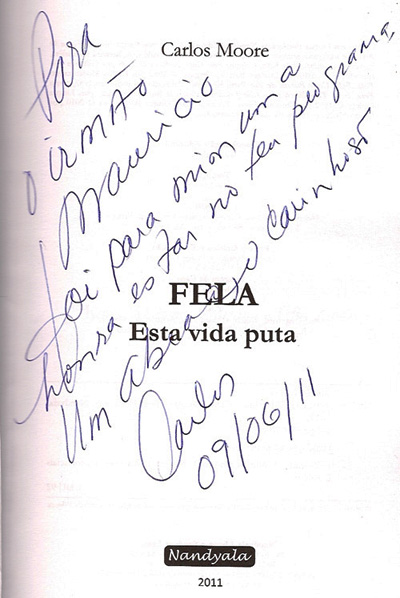 Carlos Moore
Para
o irmão
Mauricio
Foi para mim uma
honra estar no teu programa,
Um abraço carinhoso
Carlos
09/06/11
FELA
Esta vida puta
Nandyala
2011